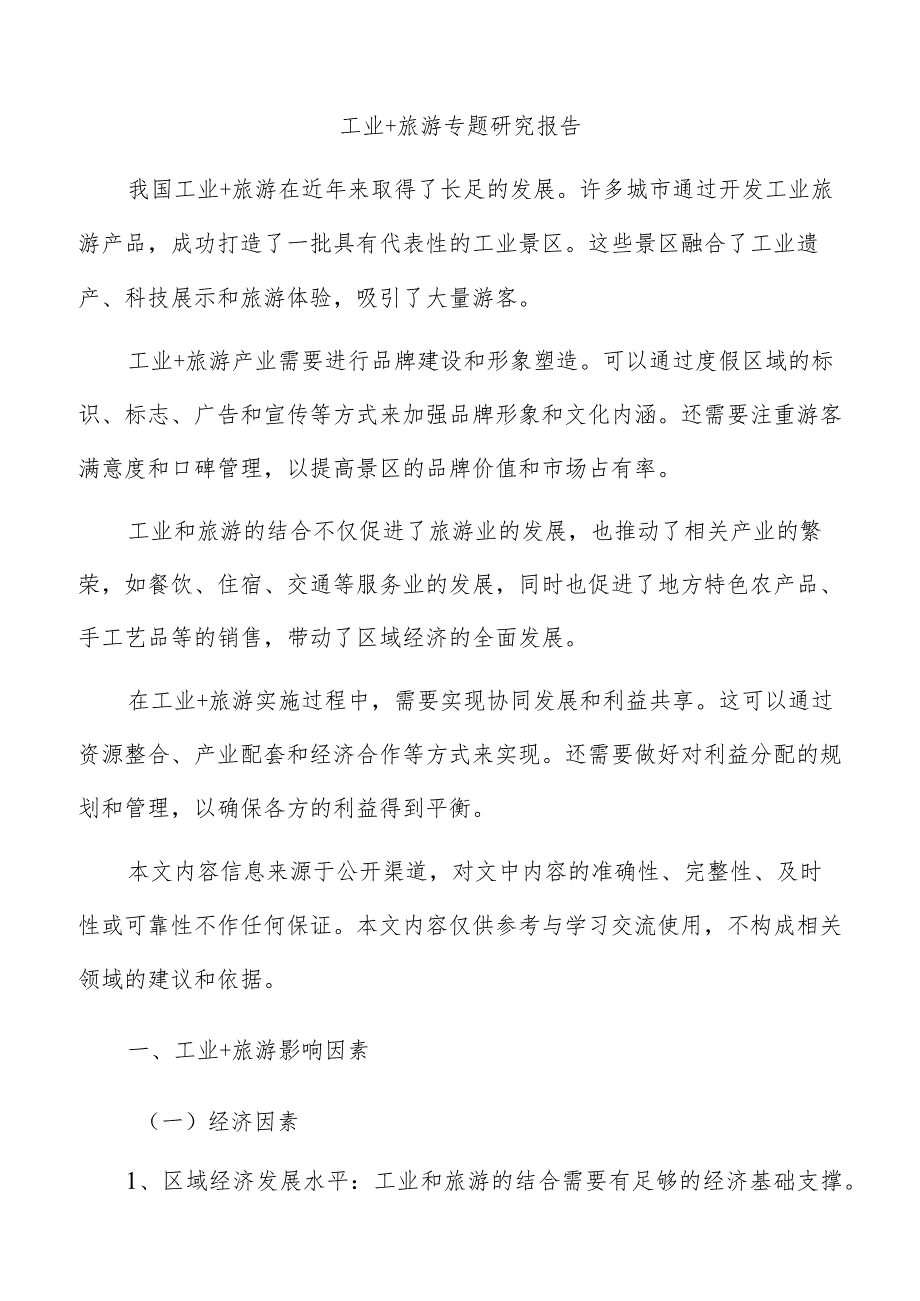 工业+旅游专题研究报告
我国工业+旅游在近年来取得了长足的发展。许多城市通过开发工业旅
游产品，成功打造了一批具有代表性的工业景区。这些景区融合了工业遗
产、科技展示和旅游体验，吸引了大量游客。
工业+旅游产业需要进行品牌建设和形象塑造。可以通过度假区域的标
识、标志、广告和宣传等方式来加强品牌形象和文化内涵。还需要注重游客
满意度和口碑管理，以提高景区的品牌价值和市场占有率。
工业和旅游的结合不仅促进了旅游业的发展，也推动了相关产业的繁
荣，如餐饮、住宿、交通等服务业的发展，同时也促进了地方特色农产品、
手工艺品等的销售，带动了区域经济的全面发展。
在工业+旅游实施过程中，需要实现协同发展和利益共享。这可以通过
资源整合、产业配套和经济合作等方式来实现。还需要做好对利益分配的规
划和管理，以确保各方的利益得到平衡。
本文内容信息来源于公开渠道，对文中内容的准确性、完整性、及时
性或可靠性不作任何保证。本文内容仅供参考与学习交流使用，不构成相关
领域的建议和依据。
一、工业+旅游影响因素
（一）经济因素
1、区域经济发展水平：工业和旅游的结合需要有足够的经济基础支撑。